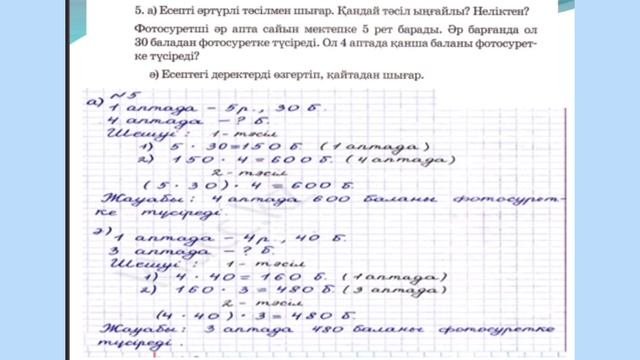 5. а) Есепті әртүрлі тәсілмен шығар. Қандай тәсіл ыңғайлы? Неліктен?
Фотосуретші әр апта сайын мектепке 5 рет барады. Әр барғанда ол
30 баладан фотосуретке түсіреді. Ол 4 аптада қанша баланы фотосурет-
ке түсіреді?
ә) Есептегі деректерді өзгертіп, қайтадан шығар.
№5
а) 1 аптада – 5 р., 30 б.
4 аптада – ? б.
Шешуі: 1 - тәсіл
1) 5 · 30 = 150 б. (1 аптада)
2) 150 · 4 = 600 б. (4 аптада)
2 - тәсіл
(5 · 30) · 4 = 600 б.
Жауабы: 4 аптада 600 баланы фотосурет-
ке түсіреді.
ә)
1 аптада – 4 р., 40 б.
3 аптада – ? б.
Шешуі: 1 - тәсіл
1) 4 · 40 = 160 б. (1 аптада)
2) 160 · 3 = 480 б. (3 аптада)
2 - тәсіл
(4 · 40) · 3 = 480 б.
Жауабы: 3 аптада 480 баланы фотосуретке
түсіреді.